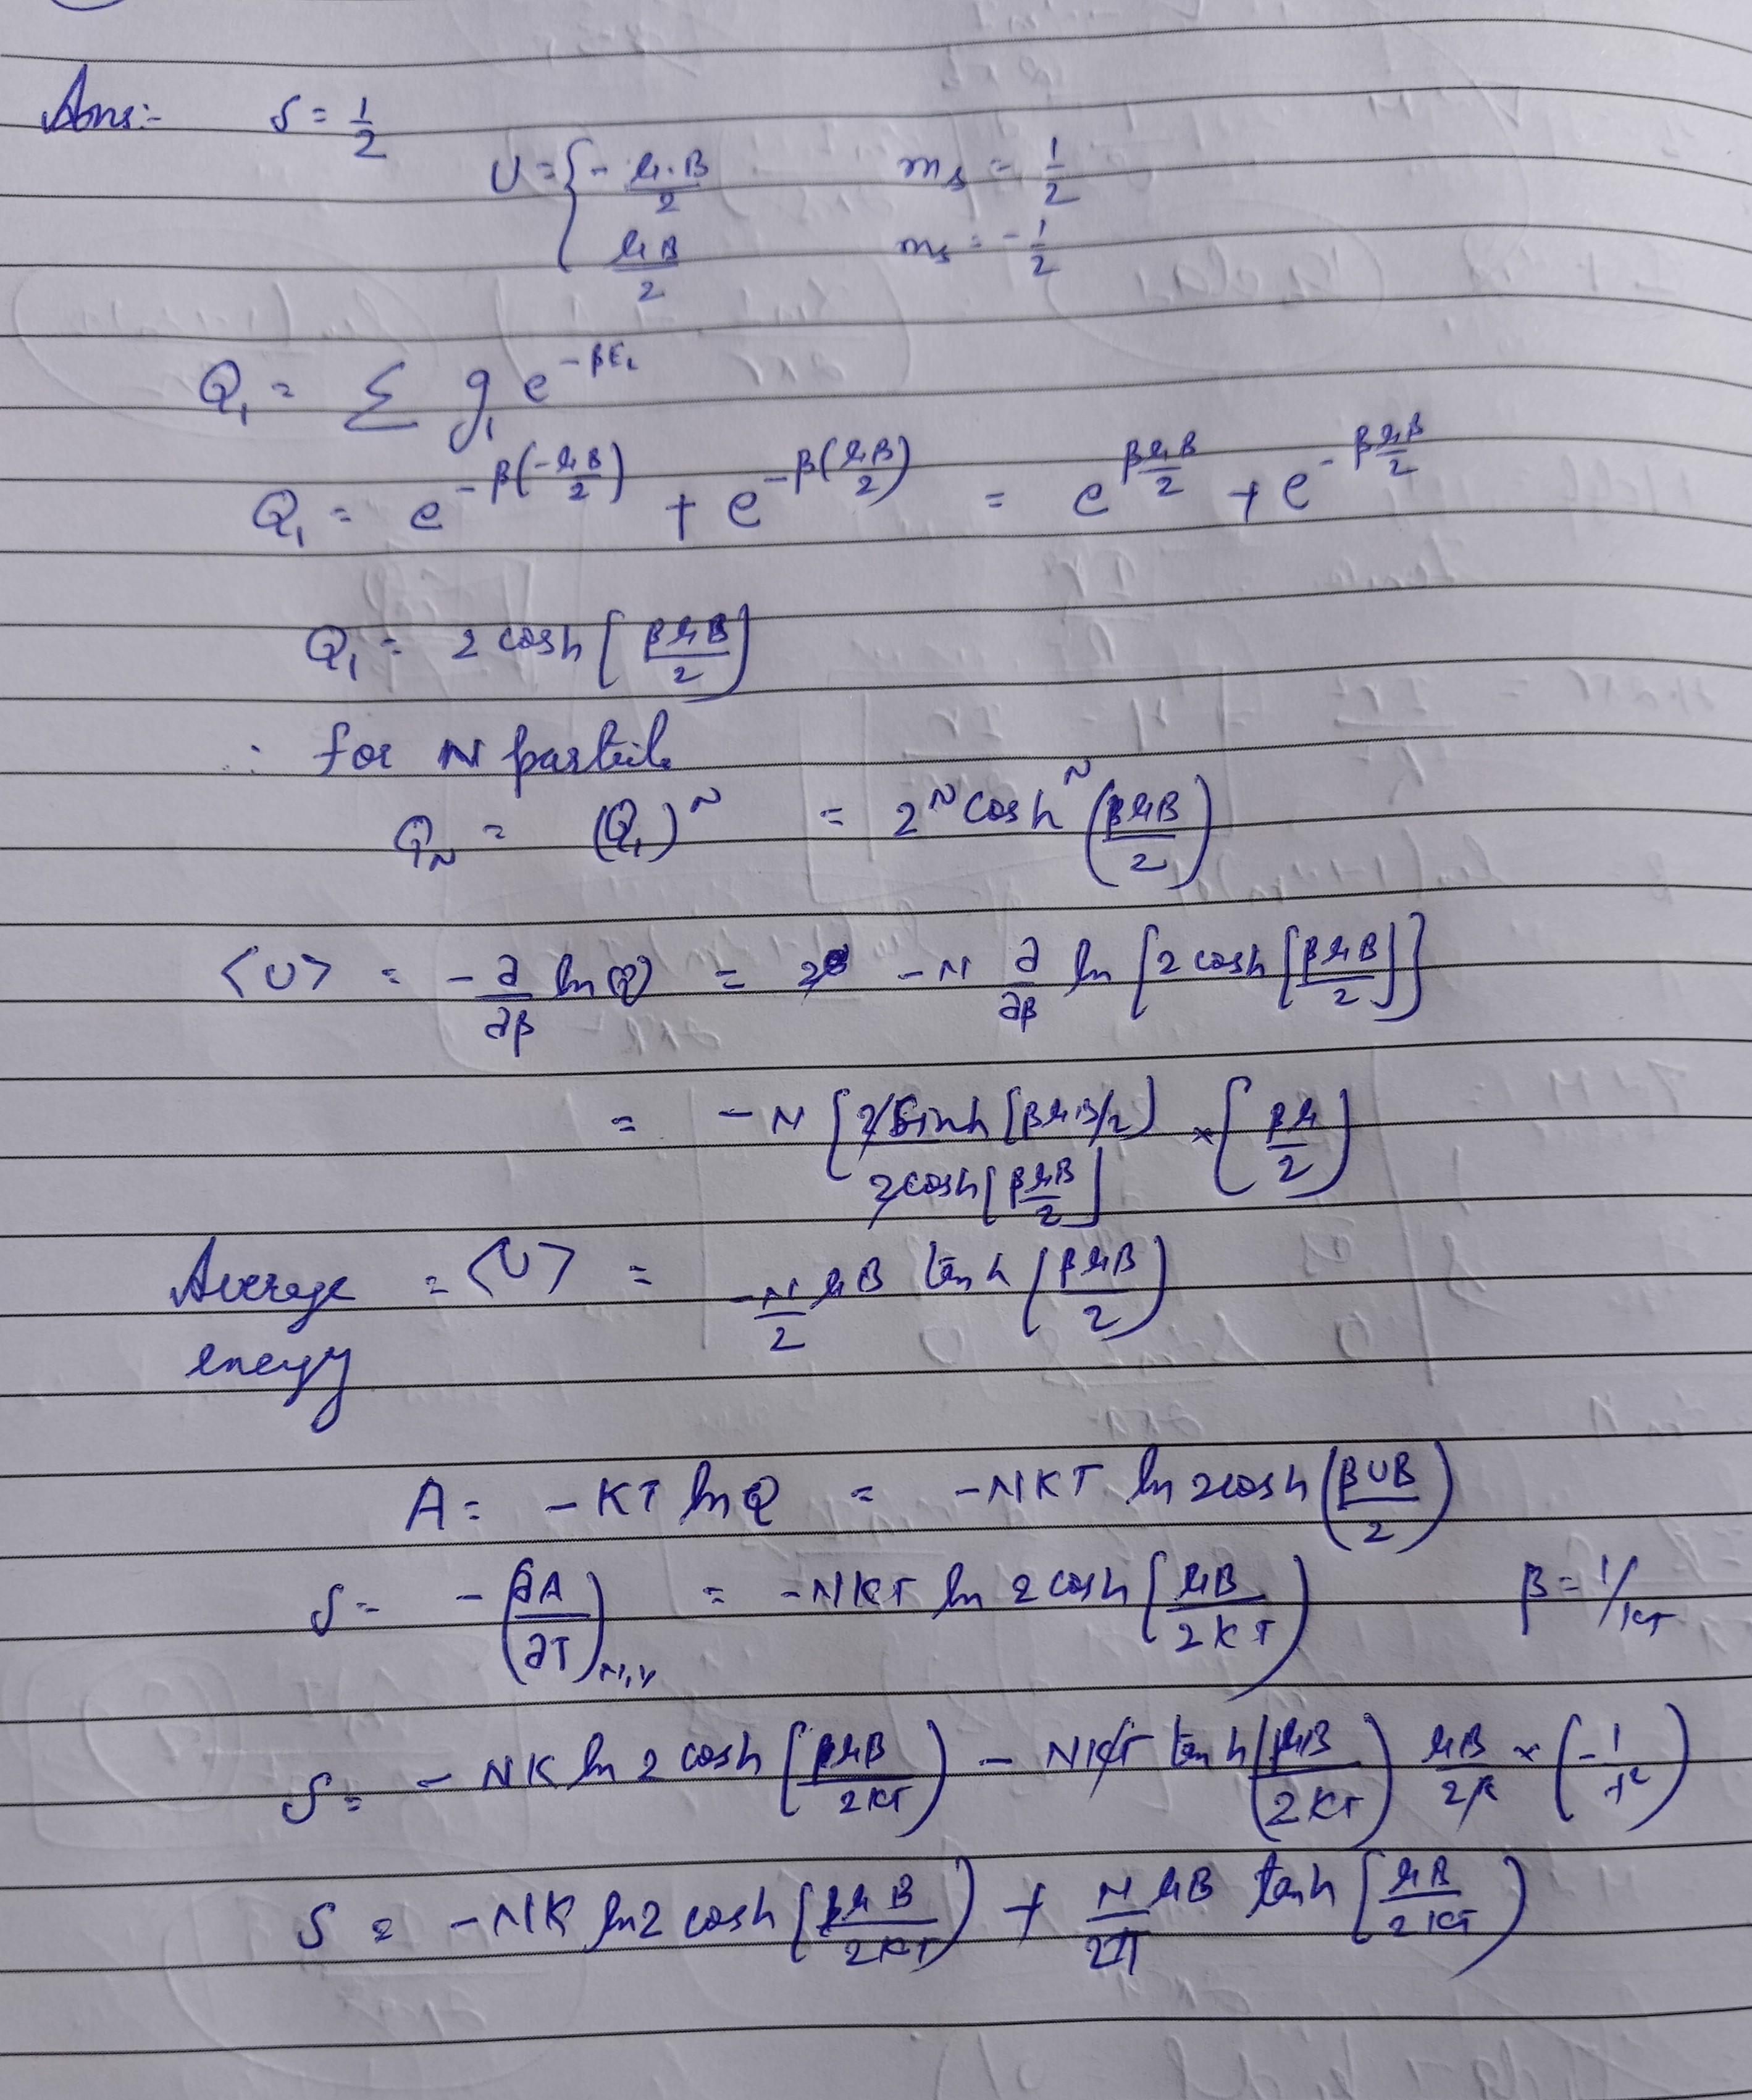 Ans:- S = 1/2
U = { - μ.B/2    m_s = 1/2
μB/2    m_s = -1/2
Q₁ = Σ g_i e^{-βE_i}
Q₁ = e^{-β(-μB/2)} + e^{-β(μB/2)} = e^{βμB/2} + e^{-βμB/2}
Q₁ = 2 cosh [βμB/2]
: for N particle
Q_N = (Q₁)^N = 2^N cosh^N (βμB/2)
<U> = -∂/∂β ln Q = -N ∂/∂β ln [2 cosh [βμB/2]]
= -N [2 sinh [βμB/2] / 2 cosh [βμB/2]] × [βμ/2]
Average energy = <U> = -N/2 μB tanh (βμB/2)
A = -KT ln Q = -NKT ln 2cosh (βUB/2)
S = -(∂A/∂T)_{N,V} = -NKT ln 2 cosh [μB/2KT]    β = 1/KT
S = - NK ln 2 cosh [μB/2KT] - NKT tanh (μB/2KT) μB/2K × (-1/T²)
S = -NK ln 2 cosh [μB/2KT] + N/2T μB tanh [μB/2KT]